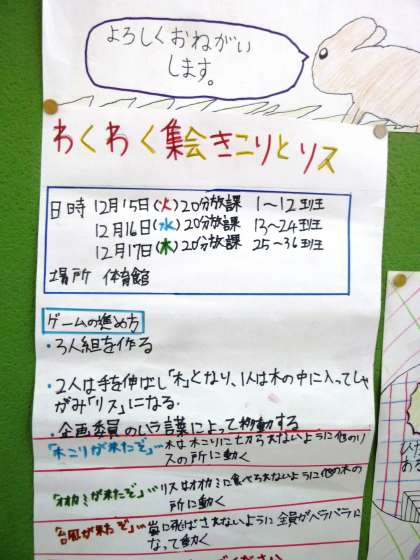 よろしくおねがい
します。
わくわく集会きこりとリス
日時 12月15日(火)20分放課 1～12班
12月16日(水)20分放課 13～24班
12月17日(木)20分放課 25～36班
場所 体育館
ゲームの進め方
・3人組を作る
・2人は手を伸ばし「木」となり、1人は木の中に入ってしゃ
がみ「リス」になる.
・企画委員のいう言葉によって移動する
「木こりが来たぞ」…木は木こりに切られないように他のリ
スの所に動く
「オオカミが来たぞ」…リスはオオカミに食べられないように他の木の
所に動く
「台風が来たぞ」…嵐に飛ばされないように全員がバラバラに
なって動く
ください